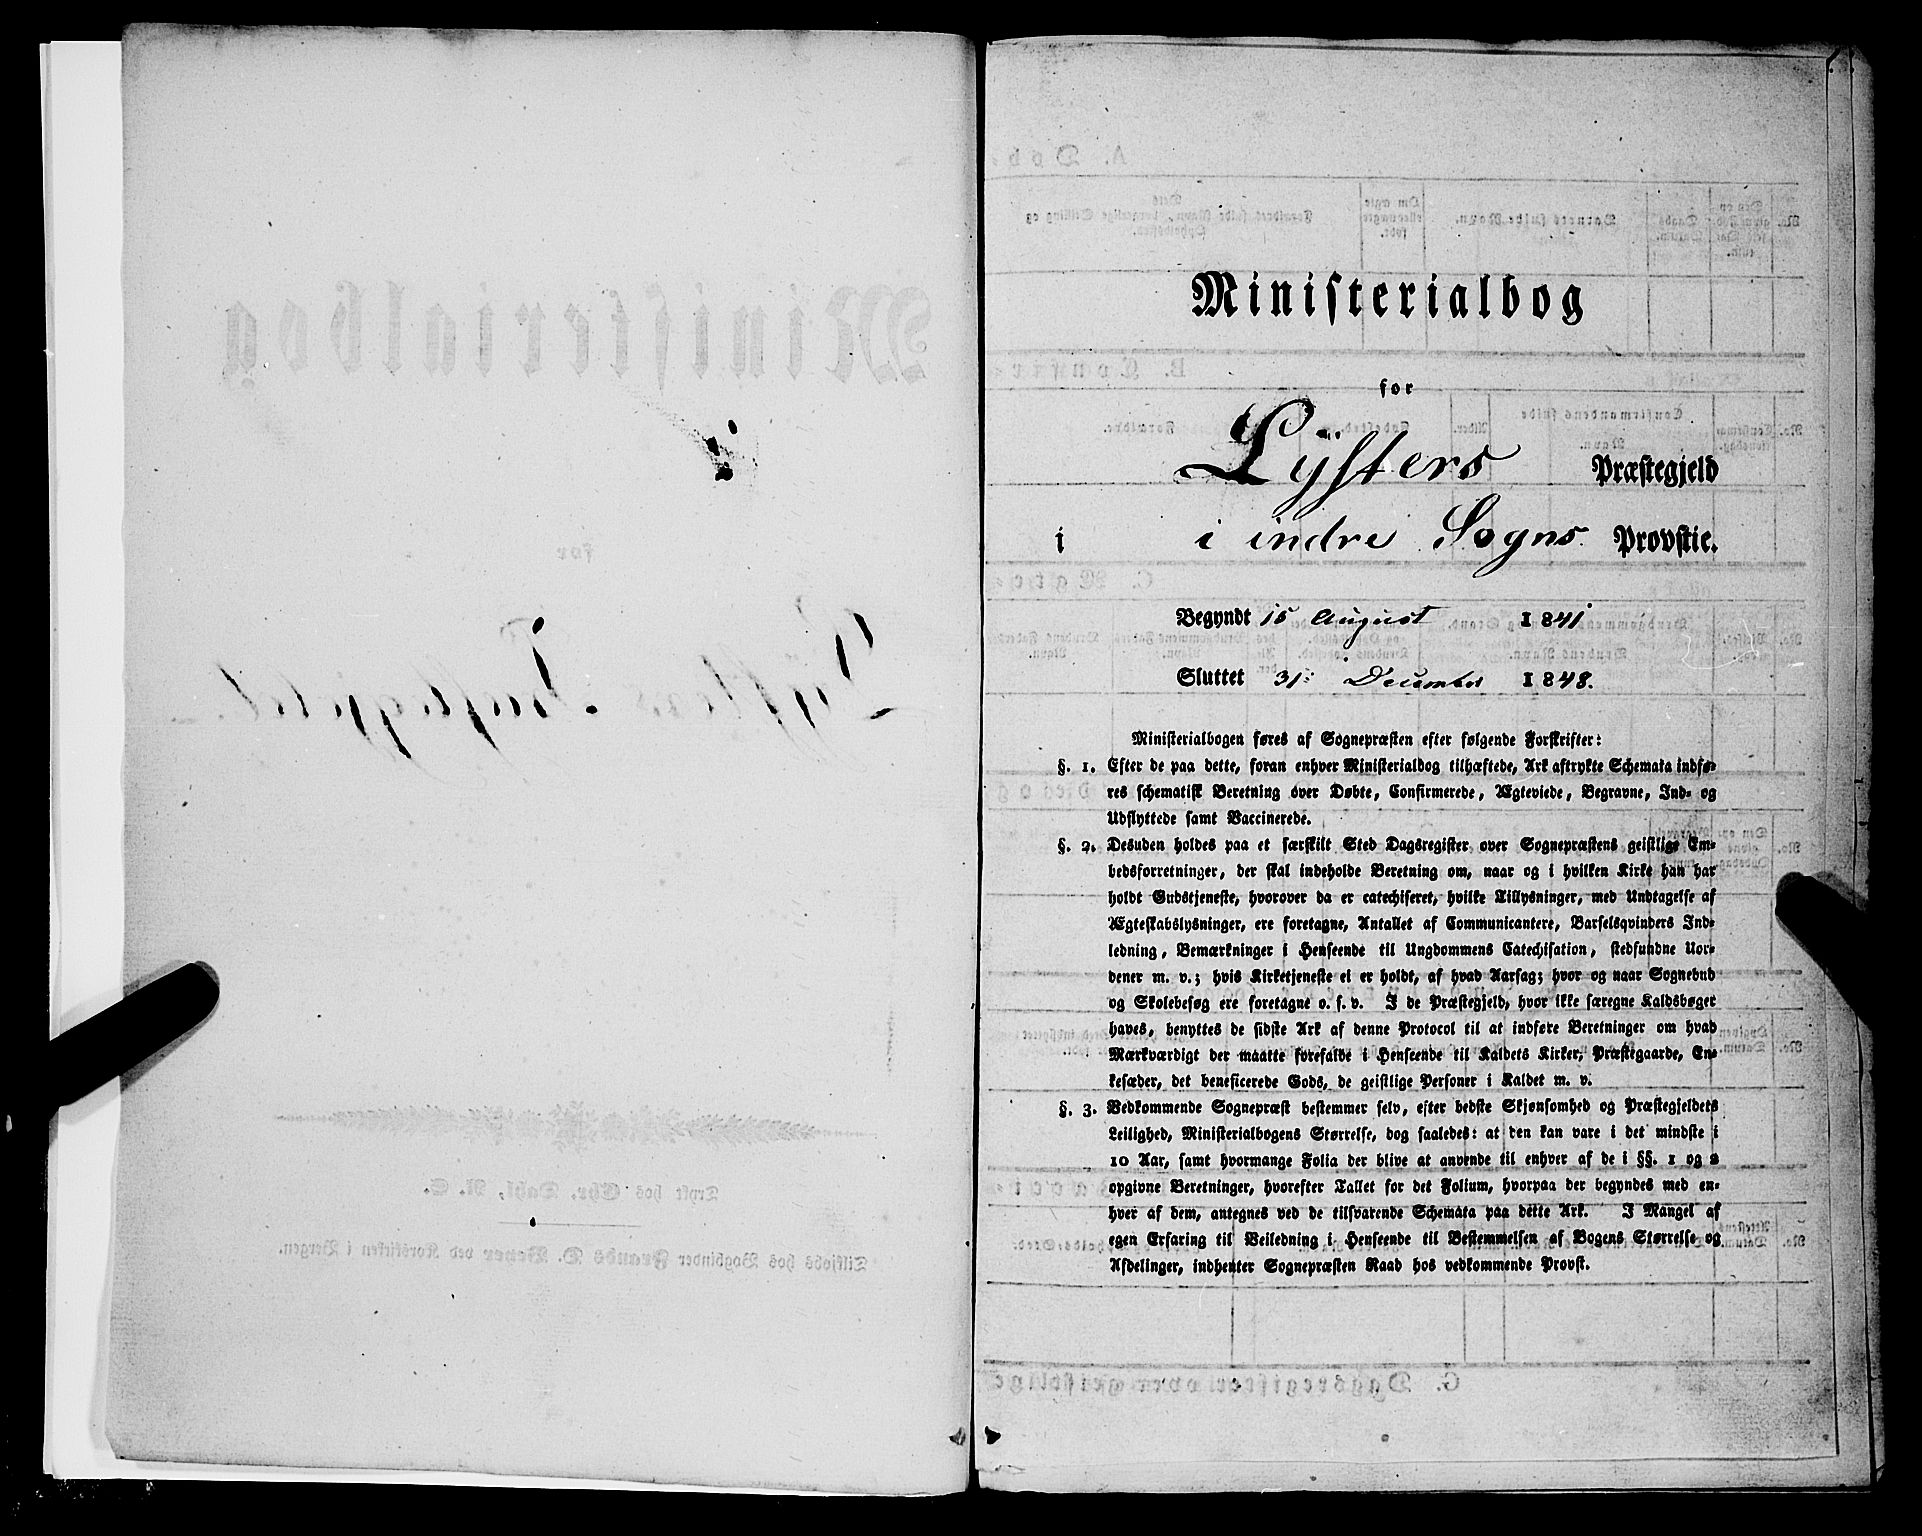 Ministerialbog
for
Lÿsters Præstegjeld
i i indre Sogns Provstie.
Begyndt 15 August 1841
Sluttet 31: December 1848.
Ministerialbogen føres af Sognepræsten efter følgende Forskrifter:
§. 1. Efter de paa dette, foran enhver Ministerialbog tilhæftede, Ark aftrykte Schemata indfø-
res schematisk Beretning over Døbte, Confirmerede, Ægteviede, Begravne, Ind- og
Udflyttede samt Vaccinerede.
§. 2. Desuden holdes paa et særskilt Sted Dagsregister over Sognepræstens geistlige Em-
bedsforretninger, der skal indeholde Beretning om, naar og i hvilken Kirke han har
holdt Gudstjeneste, hvorover da er catechiseret, hvilke Tillysninger, med Undtagelse af
Ægteskabslysninger, ere foretagne, Antallet af Communicantere, Barselqvinders Ind-
ledning, Bemærkninger i Henseende til Ungdommens Catechisation, stedfundne Uor-
dener m. v.; hvis Kirketjeneste ei er holdt, af hvad Aarsag; hvor og naar Sognebud
og Skolebesøg ere foretagne o. s. v. I de Præstegjeld, hvor ikke særegne Kaldsbøger
haves, benyttes de sidste Ark af denne Protocol til at indføre Beretninger om hvad
Mærkværdigt der maatte forefalde i Henseende til Kaldets Kirker, Præstegaarde, En-
kesæder, det beneficerede Gods, de geistlige Personer i Kaldet m. v.
§. 3. Vedkommende Sognepræst bestemmer selv, efter bedste Skjønsomhed og Præstegjeldets
Leilighed, Ministerialbogens Størrelse, dog saaledes: at den kan vare i det mindste i
10 Aar, samt hvormange Folia der blive at anvende til enhver af de i §§. 1 og 2
opgivne Beretninger, hvorefter Tallet for det Folium, hvorpaa der begyndes med en-
hver af dem, antegnes ved de tilsvarende Schemata paa dette Ark. I Mangel af
egen Erfaring til Veiledning i Henseende til Bestemmelsen af Bogens Størrelse og
Afdelinger, indhenter Sognepræsten Raad hos vedkommende Provst.